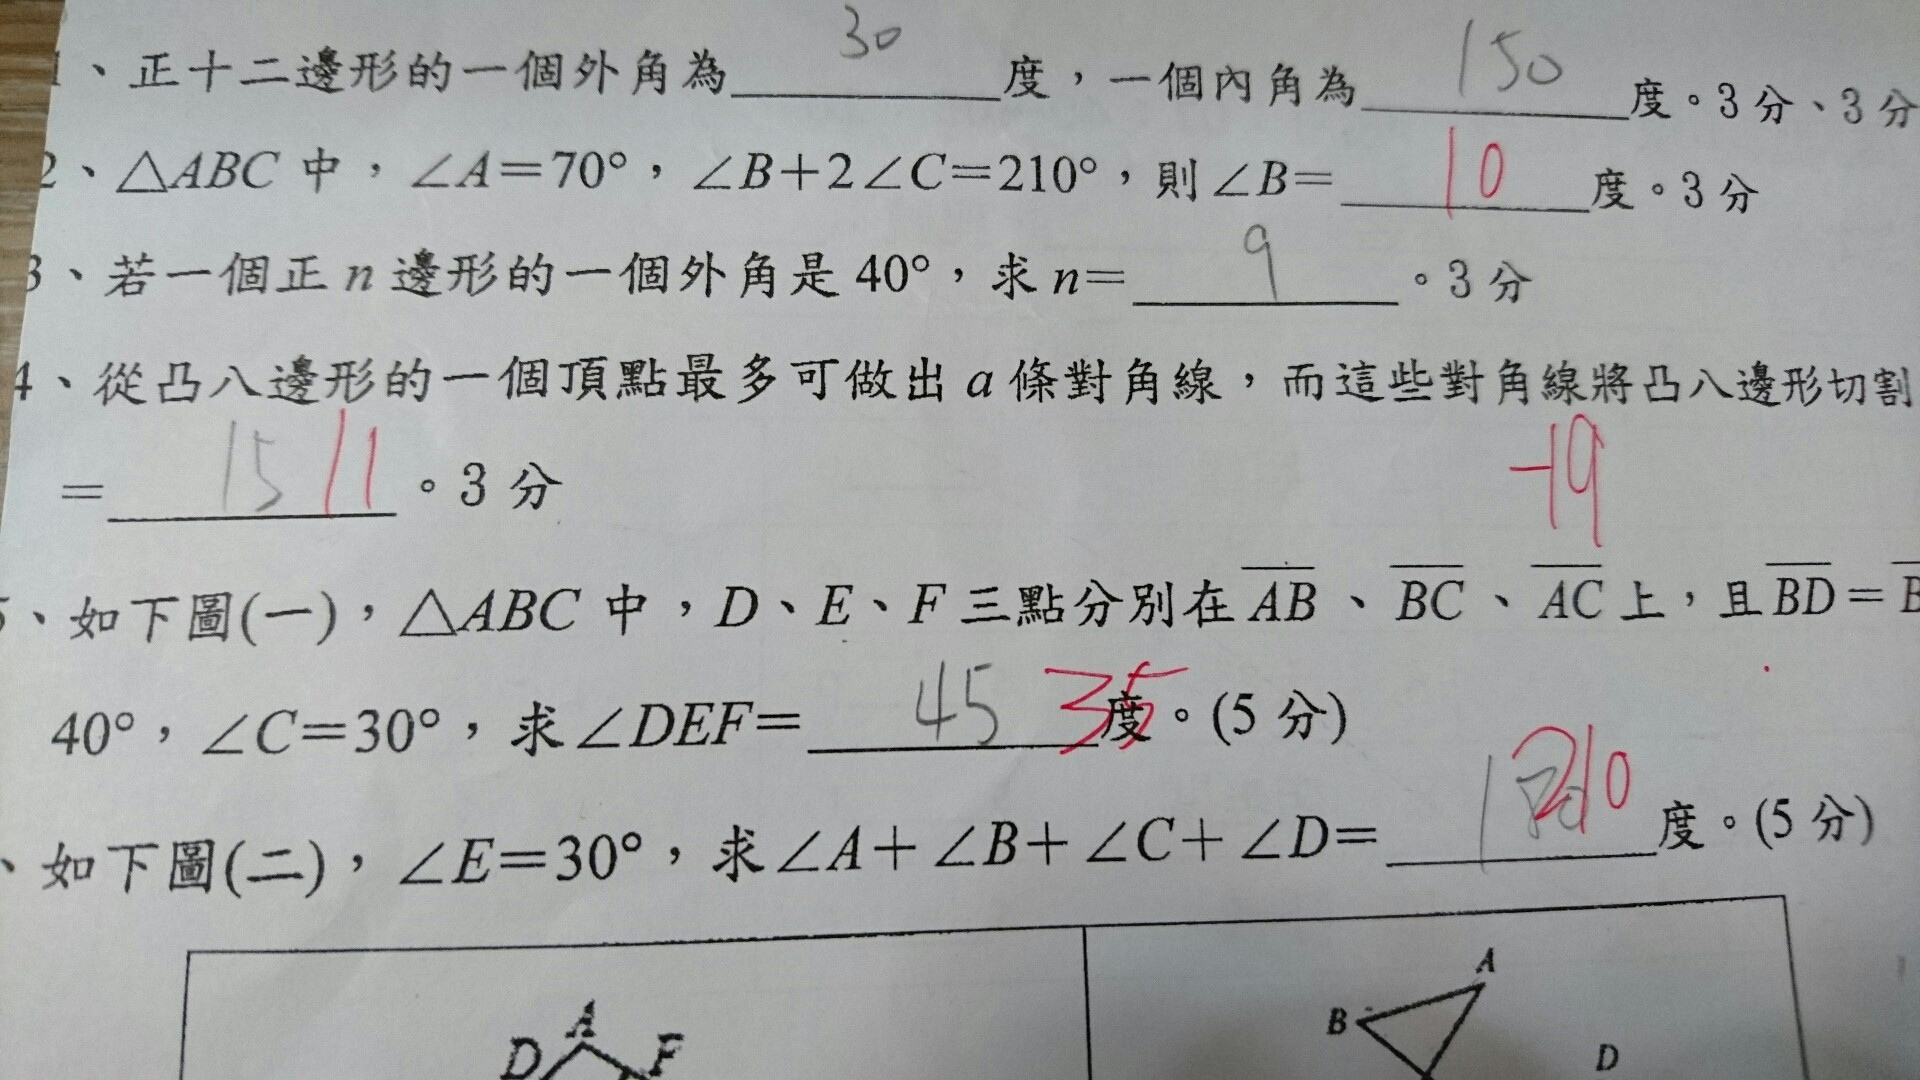 1、正十二邊形的一個外角為 30 度，一個內角為 150 度。3分、3分
2、△ABC 中，∠A=70°，∠B+2∠C=210°，則∠B= 10 度。3分
3、若一個正 n 邊形的一個外角是 40°，求 n= 9 。3分
4、從凸八邊形的一個頂點最多可做出 a 條對角線，而這些對角線將凸八邊形切割
= 15 11 。3 分
-19
5、如下圖(一)，△ABC 中，D、E、F 三點分別在 AB、BC、AC 上，且 BD=B
40°，∠C=30°，求∠DEF= 45 35 度。(5 分)
、如下圖(二)，∠E=30°，求∠A+∠B+∠C+∠D= 210 度。(5 分)
A
D F
A
B
D